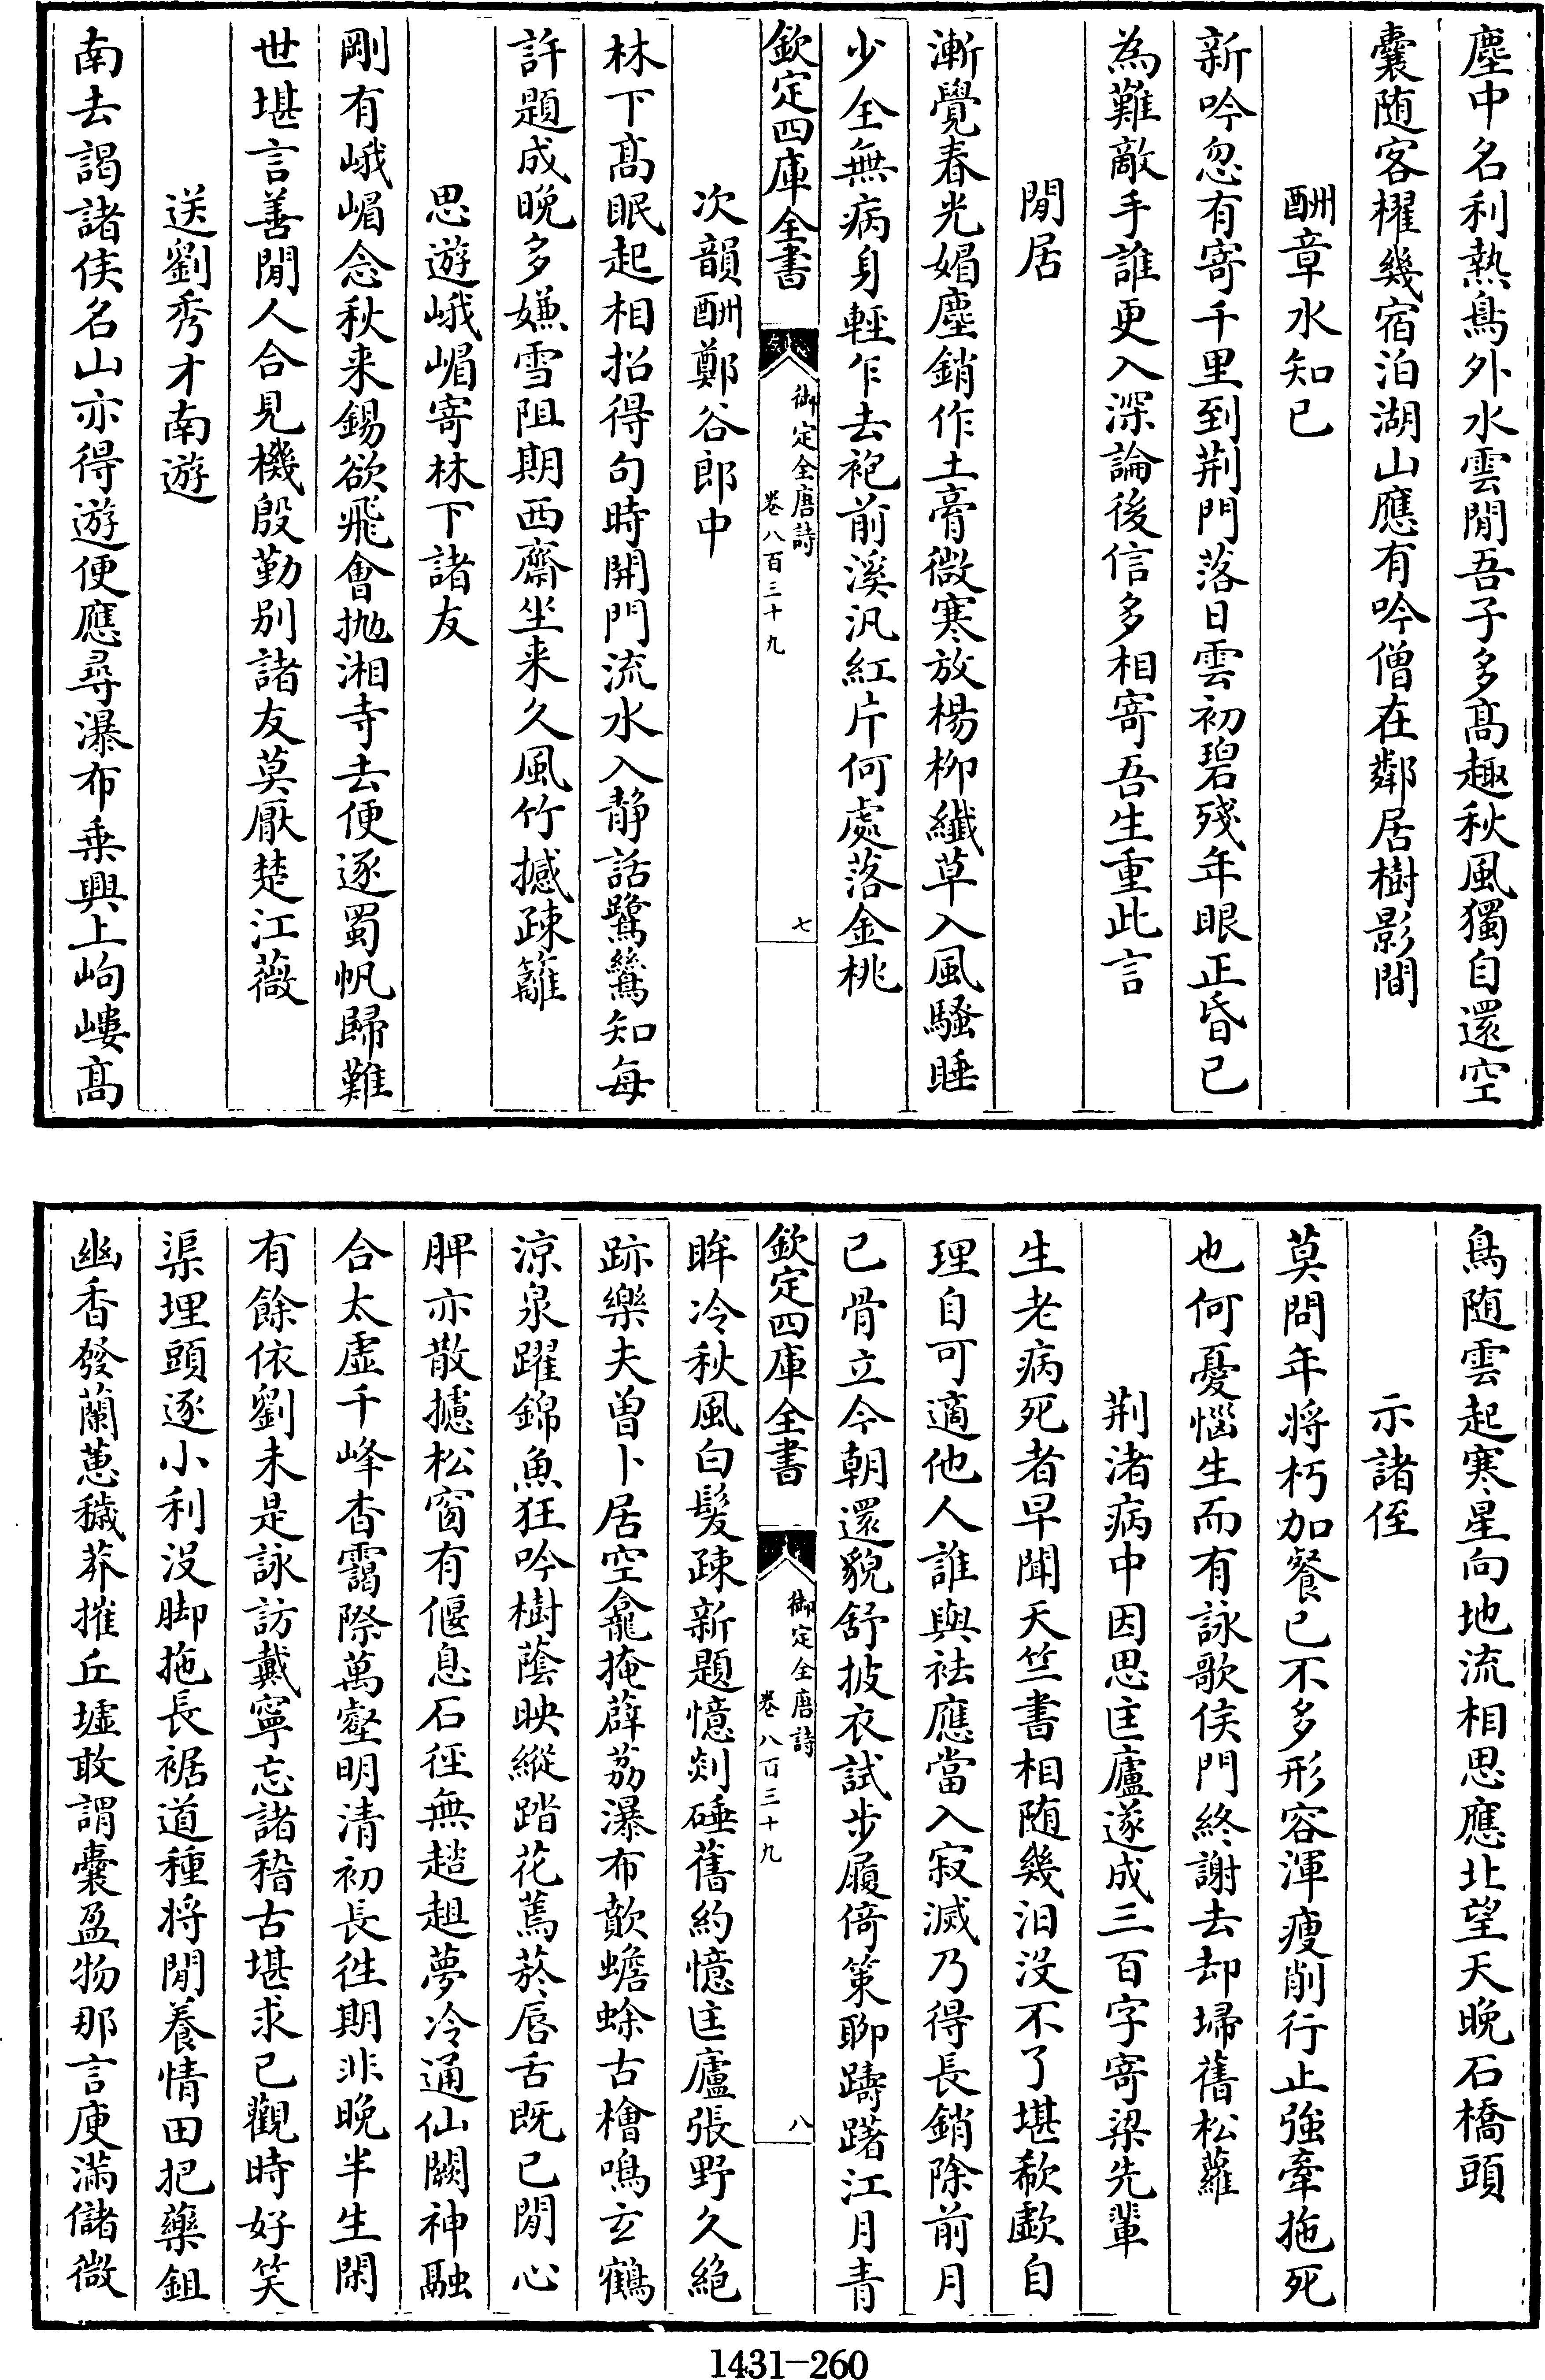 塵中名利熱鳥外水雲閒吾子多髙趣秋風獨自還空
囊随客櫂幾宿泊湖山應有吟僧在鄰居樹影間
酬章水知已
新吟忽有寄千里到荆門落日雲初碧殘年眼正昏已
為難敵手誰更入深論後信多相寄吾生重此言
閒居
漸覺春光媚塵銷作土膏微寒放楊柳纖草入風騷睡
少全無病身輕乍去袍前溪汎紅片何處落金桃
欽定四庫全書
御定全唐詩
卷八百三十九
七
次韻酬鄭谷郎中
林下髙眠起相招得句時開門流水入静話鷺鷥知每
許題成晩多嫌雪阻期西齋坐来久風竹撼疎籬
思遊峨嵋寄林下諸友
剛有峨嵋念秋来錫欲飛會抛湘寺去便逐蜀帆歸難
世堪言善閒人合見機殷勤别諸友莫厭楚江薇
送劉秀才南遊
南去謁諸侯名山亦得遊便應尋瀑布乗興上岣嶁髙
鳥随雲起寒星向地流相思應北望天晩石橋頭
示諸侄
莫問年将朽加餐已不多形容渾瘦削行止強牽拖死
也何憂惱生而有詠歌侯門終謝去却埽舊松蘿
荆渚病中因思匡廬遂成三百字寄梁先輩
生老病死者早聞天竺書相随幾汨没不了堪欷歔自
理自可適他人誰與袪應當入寂滅乃得長銷除前月
已骨立今朝還貌舒披衣試步履倚策聊躊躇江月青
眸冷秋風白髮疎新題憶剡硾舊約憶匡廬張野久絶
跡樂夫曽卜居空龕掩薜荔瀑布歕蟾蜍古檜鳴玄鶴
涼泉躍錦魚狂吟樹蔭映縱踏花蔫菸唇舌既已閒心
脾亦散攄松窗有偃息石徑無趑趄夢冷通仙闕神融
合太虚千峰杳靄際萬壑明清初長徃期非晩半生閑
有餘依劉未是詠訪戴寧忘諸稽古堪求已觀時好笑
渠埋頭逐小利没脚拖長裾道種将閒養情田把藥鉏
幽香發蘭蕙穢莽摧丘墟敢謂囊盈物那言庾滿儲微
欽定四庫全書
御定全唐詩
卷八百三十九
八
1431-260